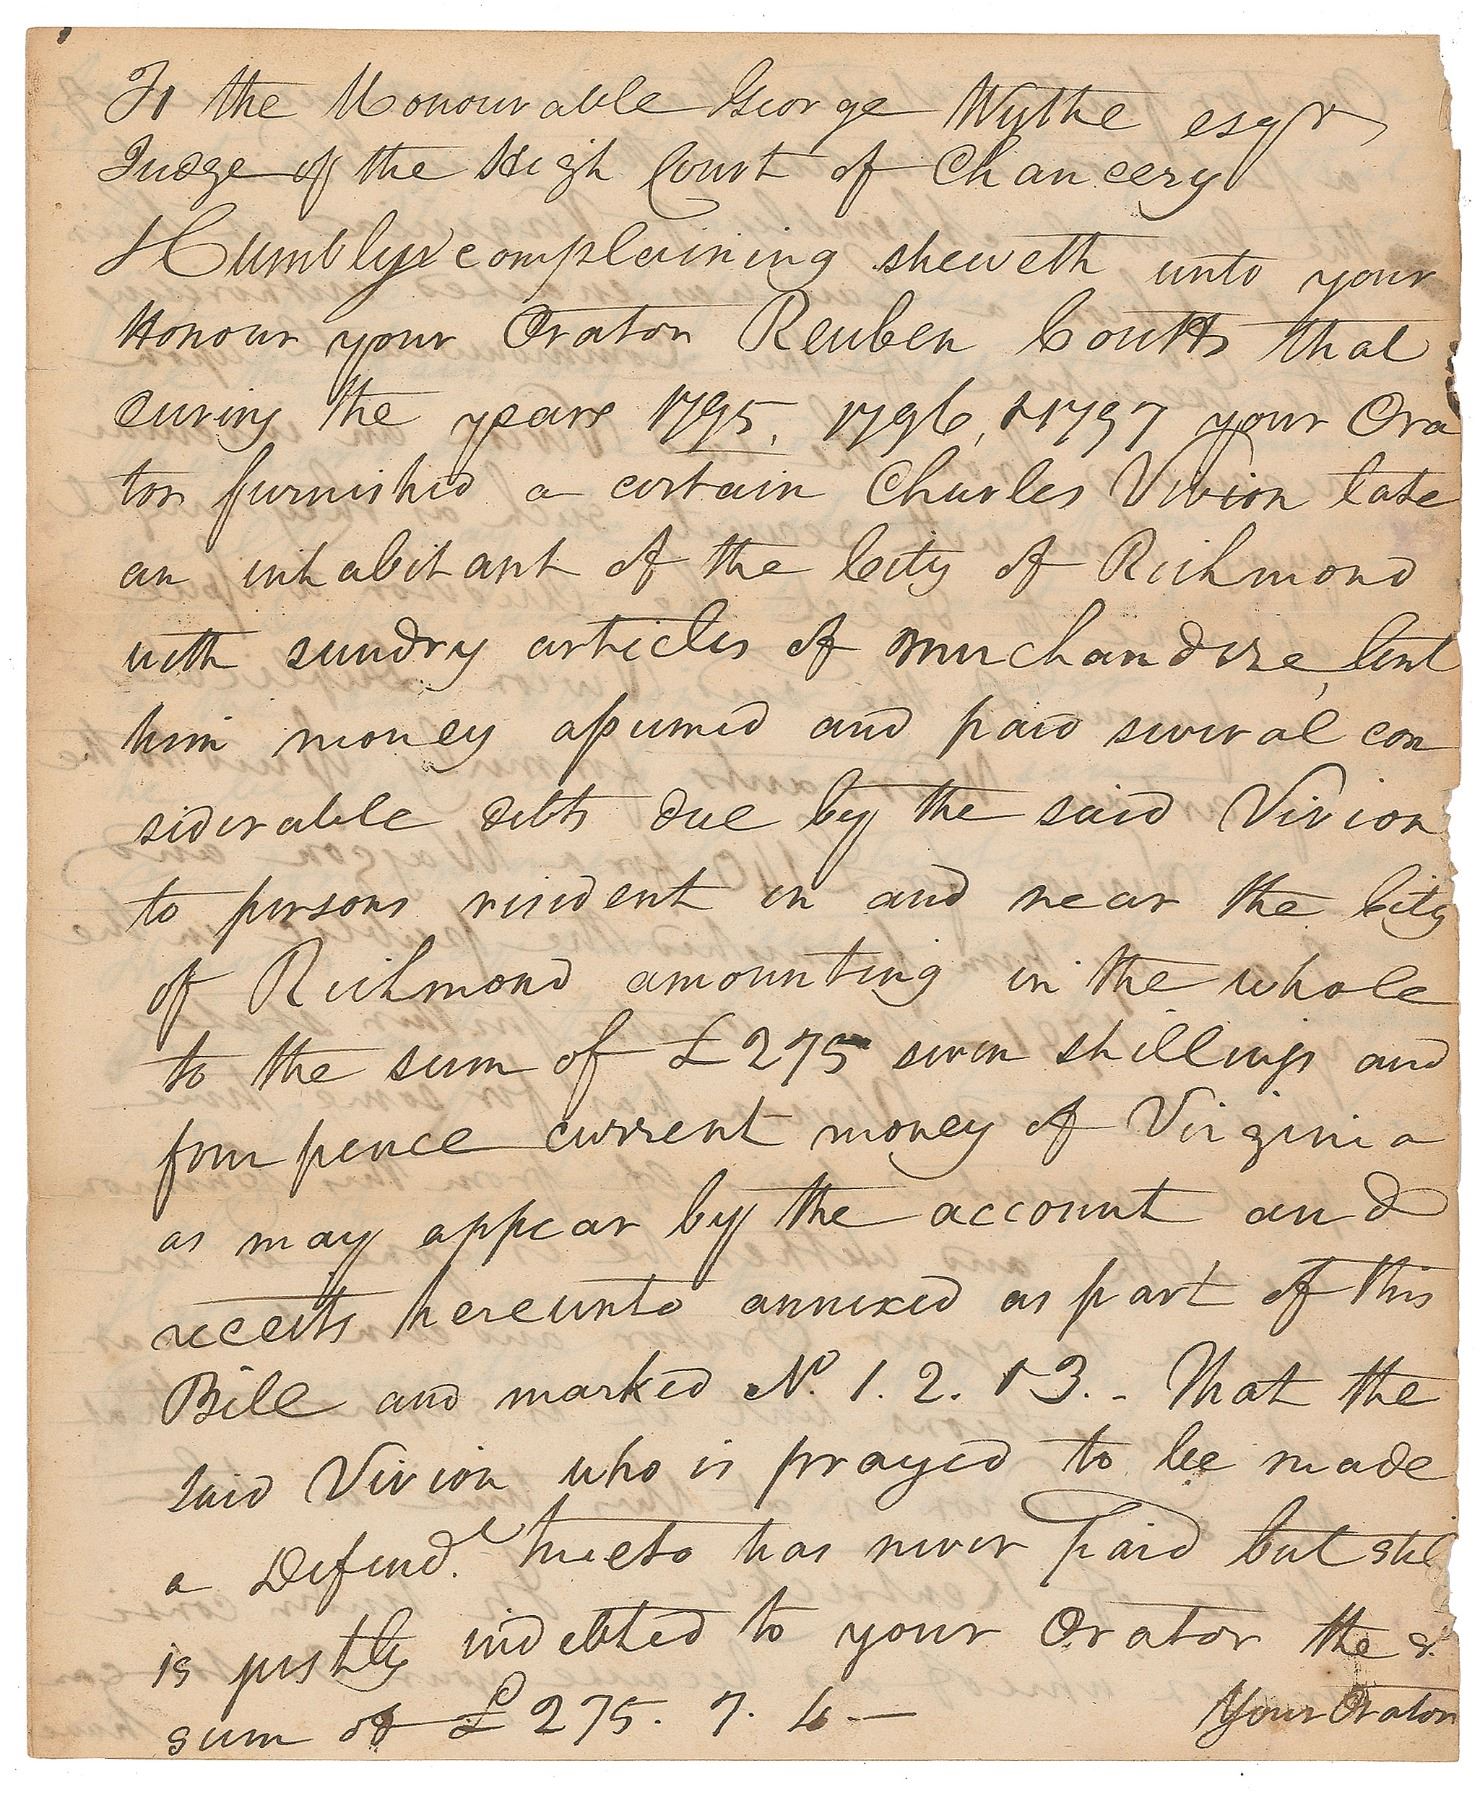 To the Honourable George Wythe esqr
Judge of the High Court of Chancery
Humbly complaining sheweth unto your
Honour your Orator Reuben Coutts that
during the years 1795, 1796, & 1797 your Ora
tor furnished a certain Charles Vivion late
an inhabitant of the City of Richmond
with sundry articles of merchandize, lent
him money assumed and paid several con
siderable debts due by the said Vivion
to persons resident in and near the City
of Richmond amounting in the whole
to the sum of £275 seven shillings and
four pence current money of Virginia
as may appear by the account and
receits hereunto annexed as part of this
Bill and marked No. 1. 2. & 3. - That the
said Vivion who is prayed to be made
a Defend. hereto has never paid but stil
is justly indebted to your Orator the sd.
sum of £275. 7. 4 —
Your Orator